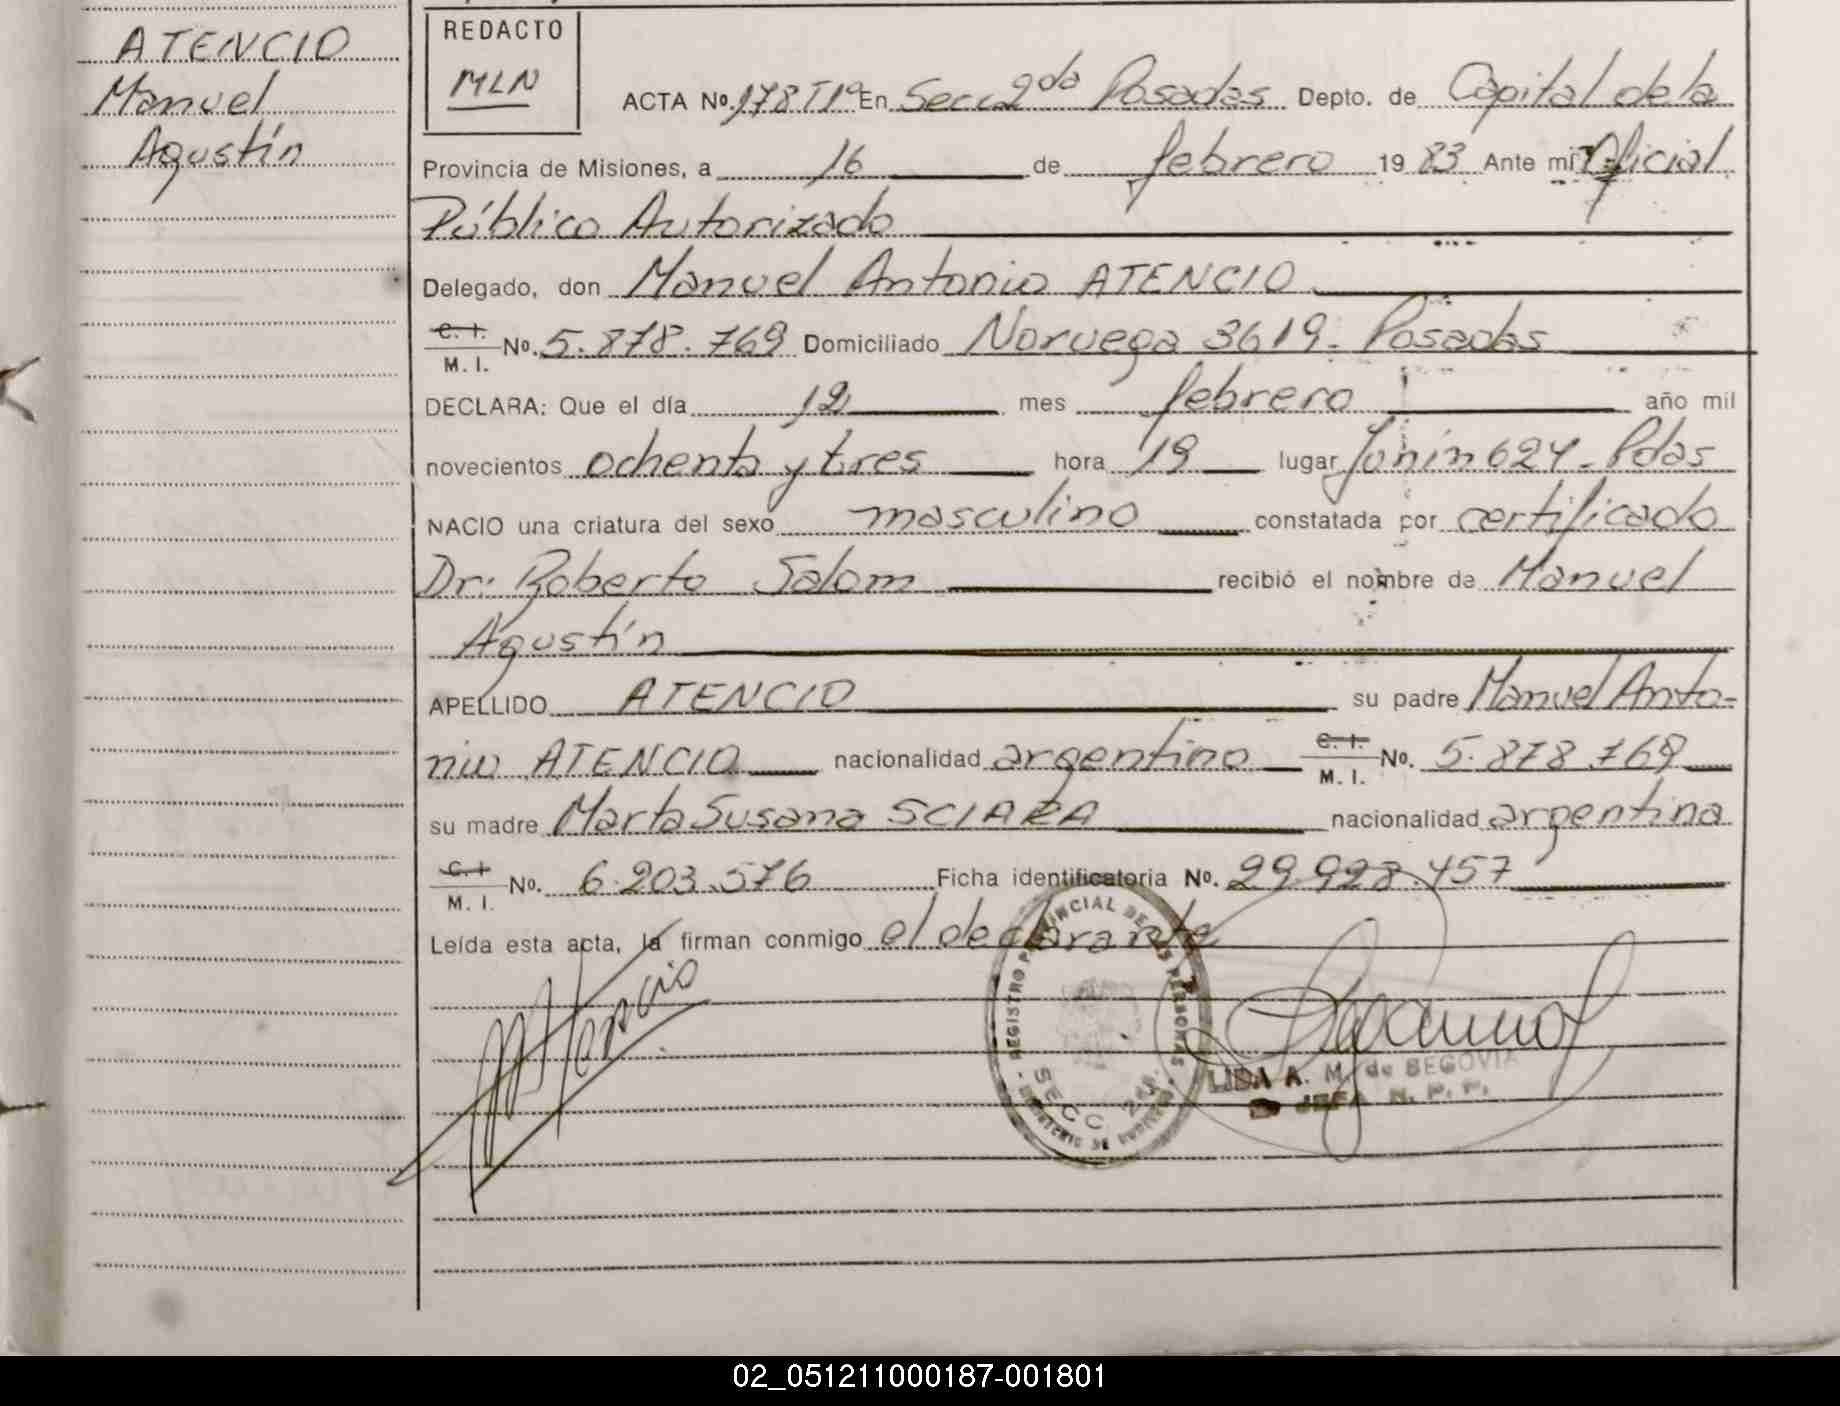 ATENCIO
Manuel
Agustín
REDACTO
MLN
ACTA Nº. 178 T1º En Secc 2da Posadas Depto. de Capital de la
Provincia de Misiones, a 16 de febrero 1983 Ante mi Oficial
Público Autorizado
Delegado, don Manuel Antonio ATENCIO
C. I.
M. I. Nº. 5.878.769 Domiciliado Noruega 3619 - Posadas
DECLARA: Que el día 12 mes febrero año mil
novecientos ochenta y tres hora 19 lugar Junín 624 - Pdas
NACIO una criatura del sexo masculino constatada por certificado
Dr. Roberto Salom recibió el nombre de Manuel
Agustín
APELLIDO ATENCIO su padre Manuel Anto-
nio ATENCIO nacionalidad argentino C. I.
M. I. Nº. 5.878.769
su madre Marta Susana SCIARA nacionalidad argentina
C. I.
M. I. Nº. 6.203.576 Ficha identificatoria Nº. 29.928.457
Leída esta acta, la firman conmigo el declarante
Atencio
REGISTRO PROVINCIAL DE LAS PERSONAS
SECC. 2da.
LIDA A. M. de SEGOVIA
JEFA R. P. P.
02_051211000187-001801